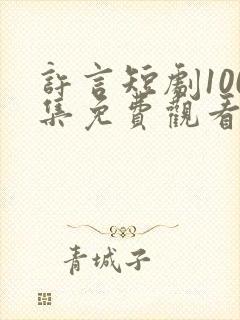 許言短劇100
集免費觀看
青城子